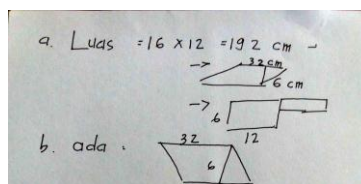 a. Luas = 16 x 12 = 192 cm -
-> 32 cm
6 cm
->
6
12
b. ada . 32
6